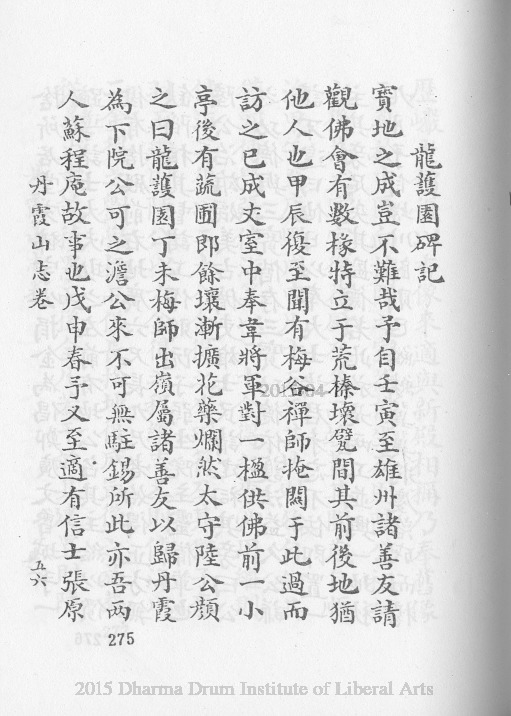 龍護園碑記
寶地之成豈不難哉予自壬寅至雄州諸善友請
觀佛會有數椽特立于荒榛壞甓間其前後地猶
他人也甲辰復至聞有梅谷禪師掩關于此過而
訪之已成丈室中奉韋將軍對一楹供佛前一小
亭後有蔬圃郎餘壤漸擴花藥爛然太守陸公顏
之曰龍護園丁未梅師出嶺屬諸善友以歸丹霞
為下院公可之澹公來不可無駐錫所此亦吾兩
人蘇程庵故事也戊申春予又至適有信士張原
丹霞山志卷
五六
275
2015 Dharma Drum Institute of Liberal Arts